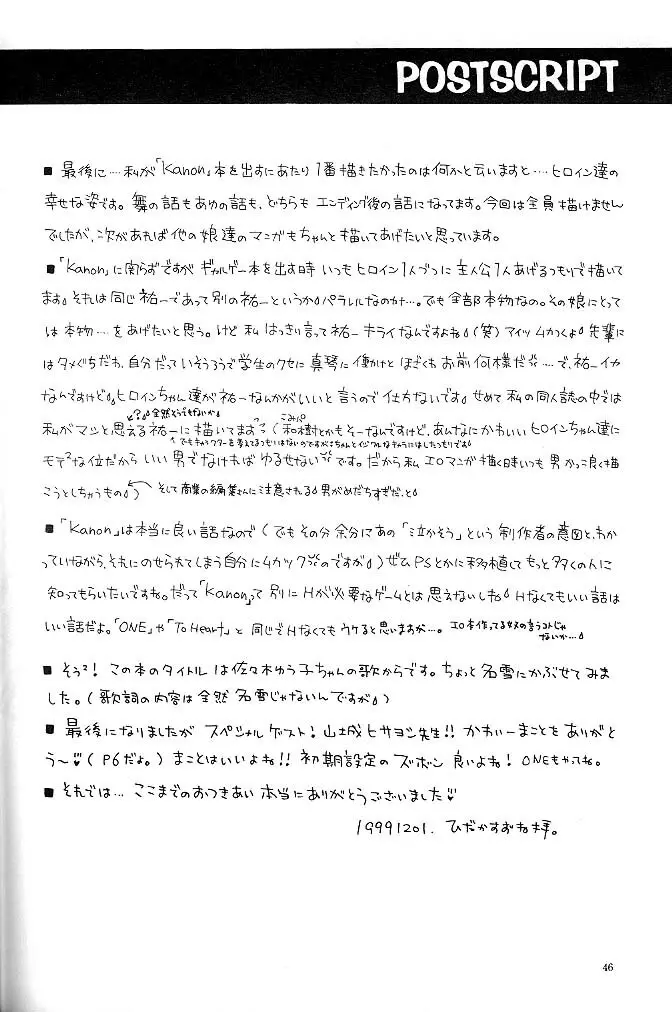 POSTSCRIPT
■ 最後に…私が「Kanon」本を出すにあたり1番描きたかったのは何かと云いますと…ヒロイン達の
幸せな姿です。舞の話もあゆの話も、どちらも エンディング後の話になってます。今回は全員描けません
でしたが、次があれば他の娘達のマンガもちゃんと描いてあげたいと思っています。
■「Kanon」に関らずですが ギャルゲー本を出す時 いつもヒロイン1人づつに主人公1人あげるつもりで描いて
ます。それは同じ祐一であって別の祐一というかパラレルなのか…。でも全部本物なの。その娘にとって
は本物…をあげたいと思う。けど 私 はっきり言って祐一キライなんですよね(笑)アイツムカつくよ 先輩に
はタメぐちだわ、自分だっていそうろうで学生のクセに真琴に働けとほざくわ お前何様だ…で、祐一イカ
なんですけど ヒロインちゃん達が祐一なんかがいいと言うので仕方ないです。せめて 私の同人誌の中では
?全然そうでもないか
私がマシと思える祐一に描いてます?(和樹とかもそーなんですけど、あんなにかわいいヒロインちゃん達に
こみパ
でもキャラクターを変えてるつもりはないのですが
モテモテな位だからいい男でなければゆるせないです。だから私 エロマンガ描く時いつも男かっこ良く描
こうとしちゃうもの) そして商業の編集さんに注意される 男がめだちすぎだ、と
■「Kanon」は本当に良い話なので(でもその分余分にあの「泣かそう」という制作者の意図とわか
っていながら、それにのせられてしまう自分にムカックのですが)ぜひPSとかに移植してもっと多くの人に
知ってもらいたいですね。だって「Kanon」って別にHが必要なゲームとは思えないしね Hなくてもいい話は
いい話だよ。「ONE」や「To Heart」と同じでHなくてもウケると思いますが…。エロ本作ってる奴の言うコトじゃ
ないか…
■ そうそう! この本のタイトルは佐々木ゆう子ちゃんの歌からです。ちょっと名雪にかぶせてみま
した。(歌詞の内容は全然名雪じゃないんですが)
■ 最後になりましたが スペシャルゲスト! 山城ヒサヨシ先生!! かわいーまことをありがと
う〜♡(P6だよ。) まことはいいよね!! 初期設定のズボン良いよね! ONEもやってね。
■ それでは… ここまでのおつきあい本当にありがとうございました♡
19991201. ひだかすおね拝。
46